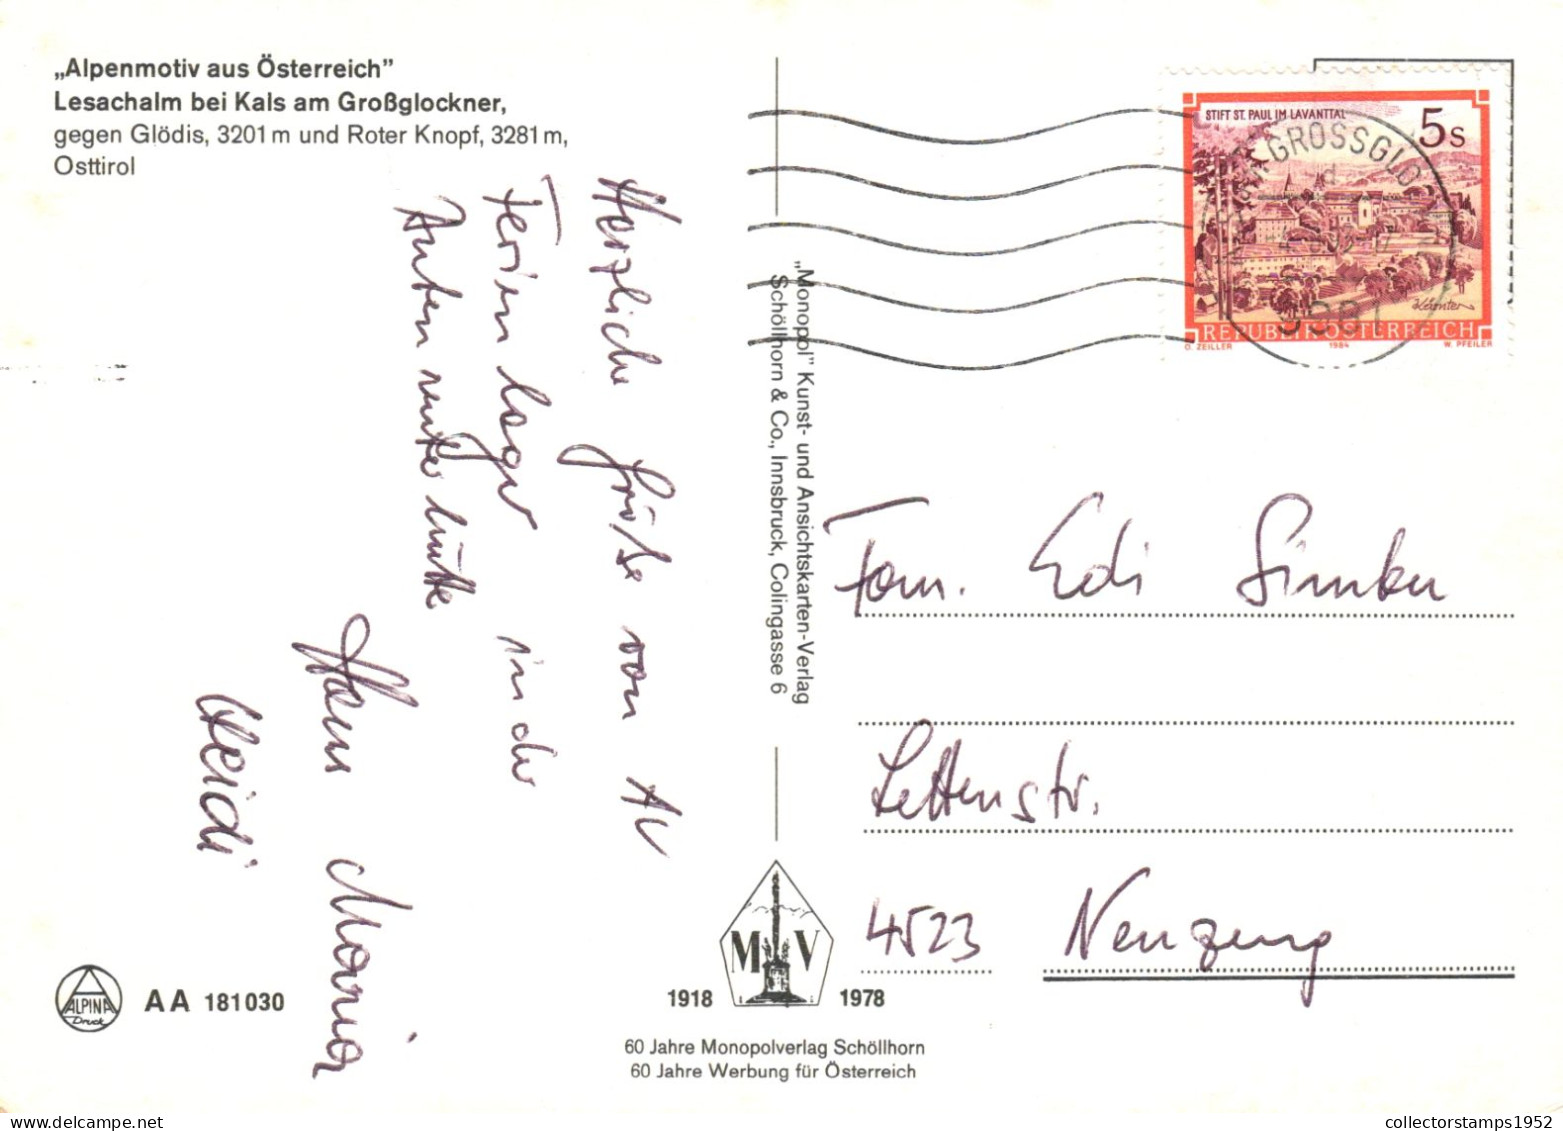 „Alpenmotiv aus Österreich"
Lesachalm bei Kals am Großglockner,
gegen Glödis, 3201 m und Roter Knopf, 3281 m,
Osttirol
Herzliche Grüße von AV
Ferien lager in der
hütte
Hans Maria
Heidi
„Monopol" Kunst- und Ansichtskarten-Verlag
Schöllhorn & Co., Innsbruck, Colingasse 6
STIFT ST. PAUL IM LAVANTTAL
5 S
Kärnten
REPUBLIK ÖSTERREICH
O. ZEILLER 1984 W. PFEILER
GROSSGLO
9981
Fam. Edi
Lettenstr.
4523 Neuzeug
M V
1918 1978
60 Jahre Monopolverlag Schöllhorn
60 Jahre Werbung für Österreich
ALPINA
Druck
AA 181030
collectorstamps1952